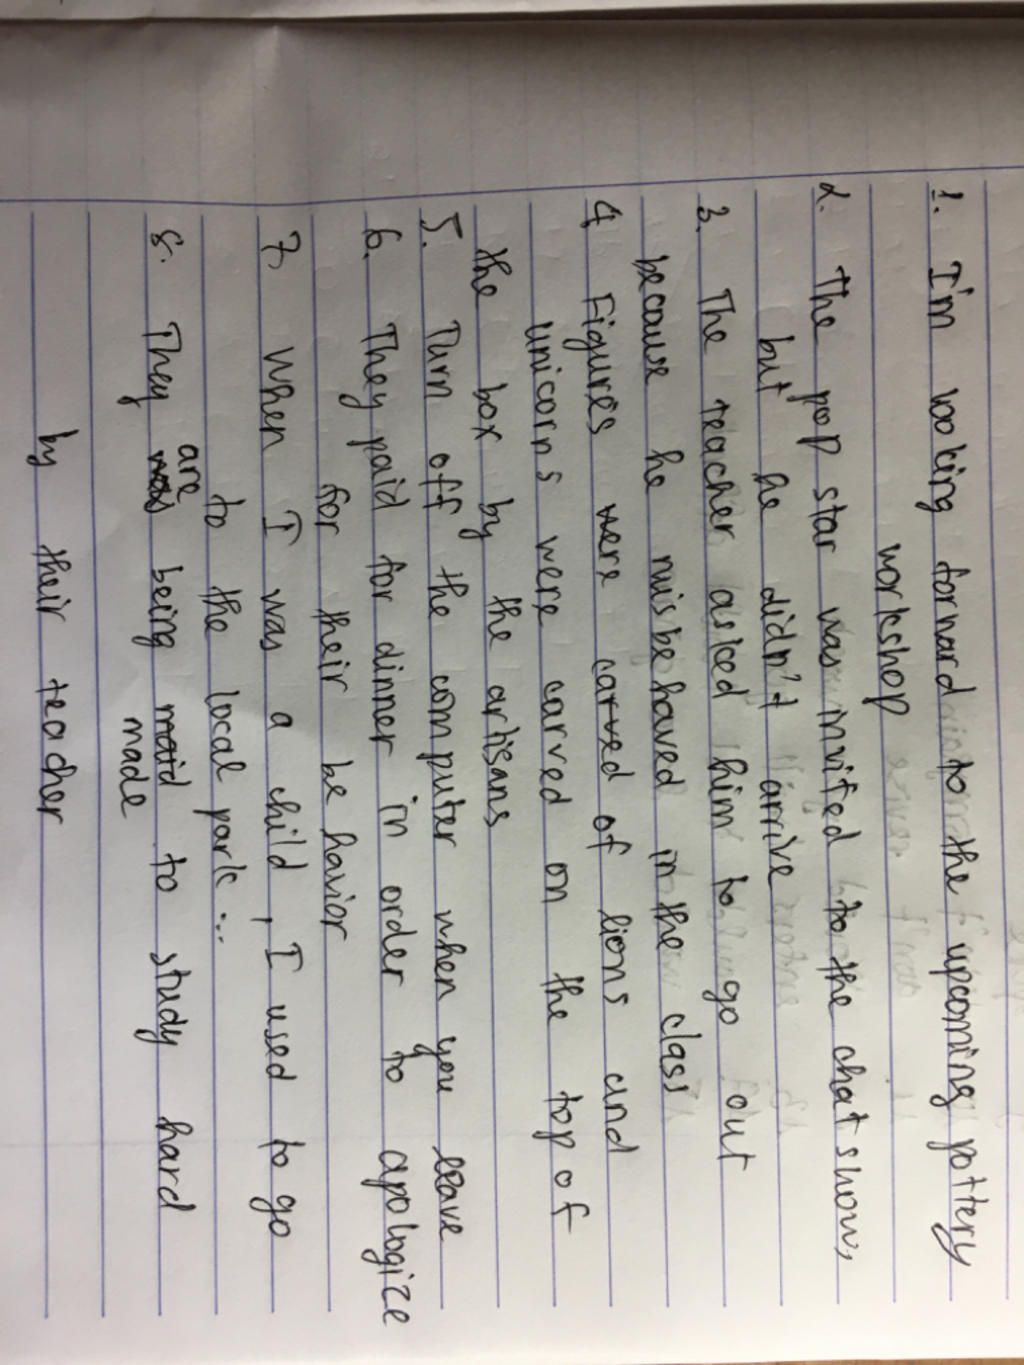 1. I'm looking forward to the upcoming pottery
workshop
2. The pop star was invited to the chat show,
but he didn't arrive
3. The teacher asked him to go out
because he misbehaved in the class
4 Figures were carved of lions and
unicorns were carved on the top of
the box by the artisans
5. Turn off the computer when you leave
6. They paid for dinner in order to apologize
for their behavior
7. When I was a child, I used to go
to the local park...
are
8. They was being maid to study hard
made
by their teacher